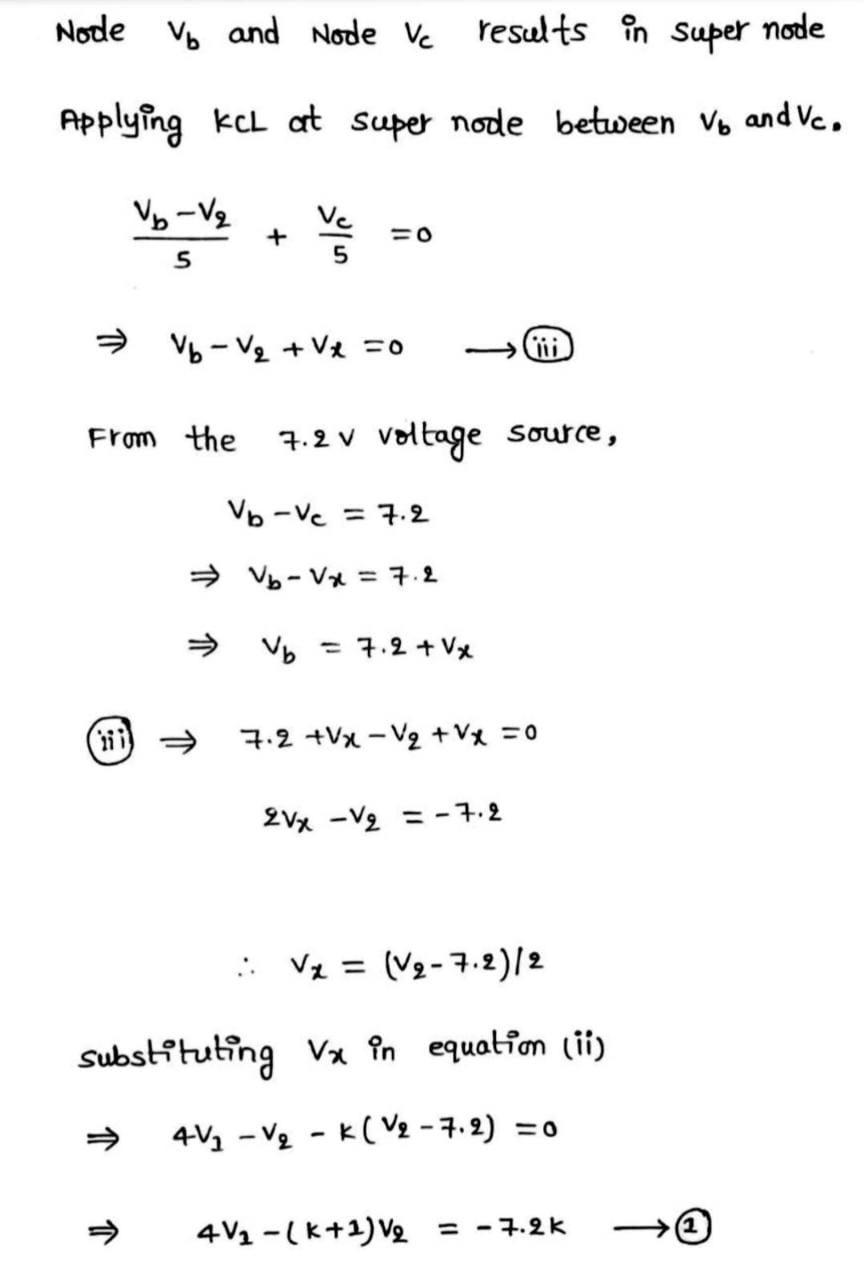 Node Vb and Node Vc results in super node
Applying KCL at super node between Vb and Vc.
(Vb - V2)/5 + Vc/5 = 0
⇒ Vb - V2 + Vx = 0 ⟶ (iii)
From the 7.2 V voltage source,
Vb - Vc = 7.2
⇒ Vb - Vx = 7.2
⇒ Vb = 7.2 + Vx
(iii) ⇒ 7.2 + Vx - V2 + Vx = 0
2Vx - V2 = -7.2
∴ Vx = (V2 - 7.2)/2
substituting Vx in equation (ii)
⇒ 4V1 - V2 - K(V2 - 7.2) = 0
⇒ 4V1 - (K+1)V2 = -7.2K ⟶ (1)